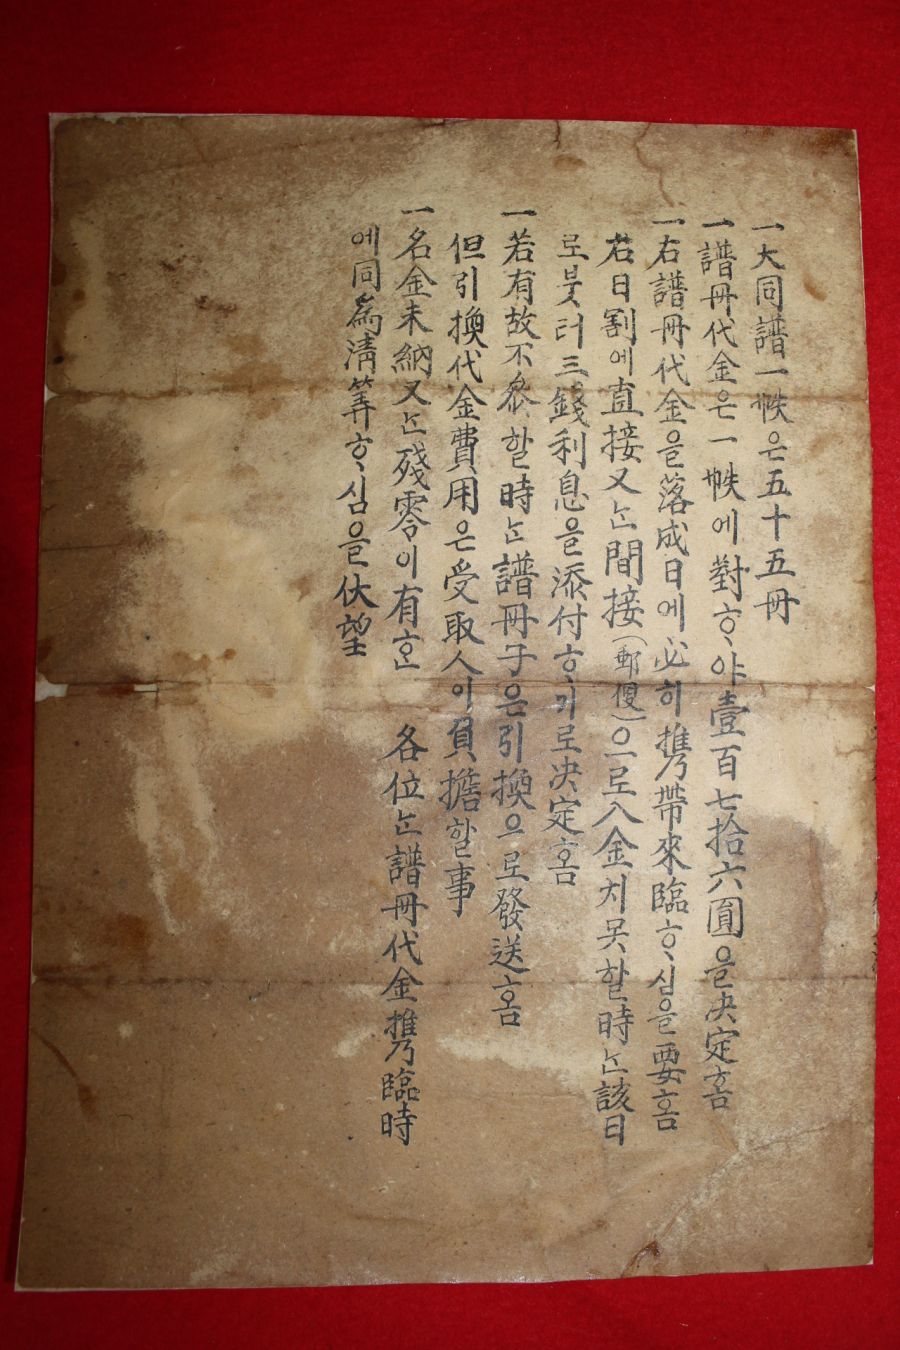 一大同譜一帙은五十五冊
一譜冊代金은一帙에對ᄒᆞ야壹百七拾六圓을决定홈
一右譜冊代金을落成日에必히携帶來臨ᄒᆞ심을要홈
若日割에直接又ᄂᆞᆫ間接(郵便)으로入金치못할時ᄂᆞᆫ該日
로붓터三錢利息을添付ᄒᆞ기로决定홈
一若有故不參할時ᄂᆞᆫ譜冊子은引換으로發送홈
但引換代金費用은受取人이負擔할事
一名金未納又ᄂᆞᆫ殘零이有ᄒᆞᆫ 各位ᄂᆞᆫ譜冊代金携臨時
에同爲淸筭ᄒᆞ심을伏望